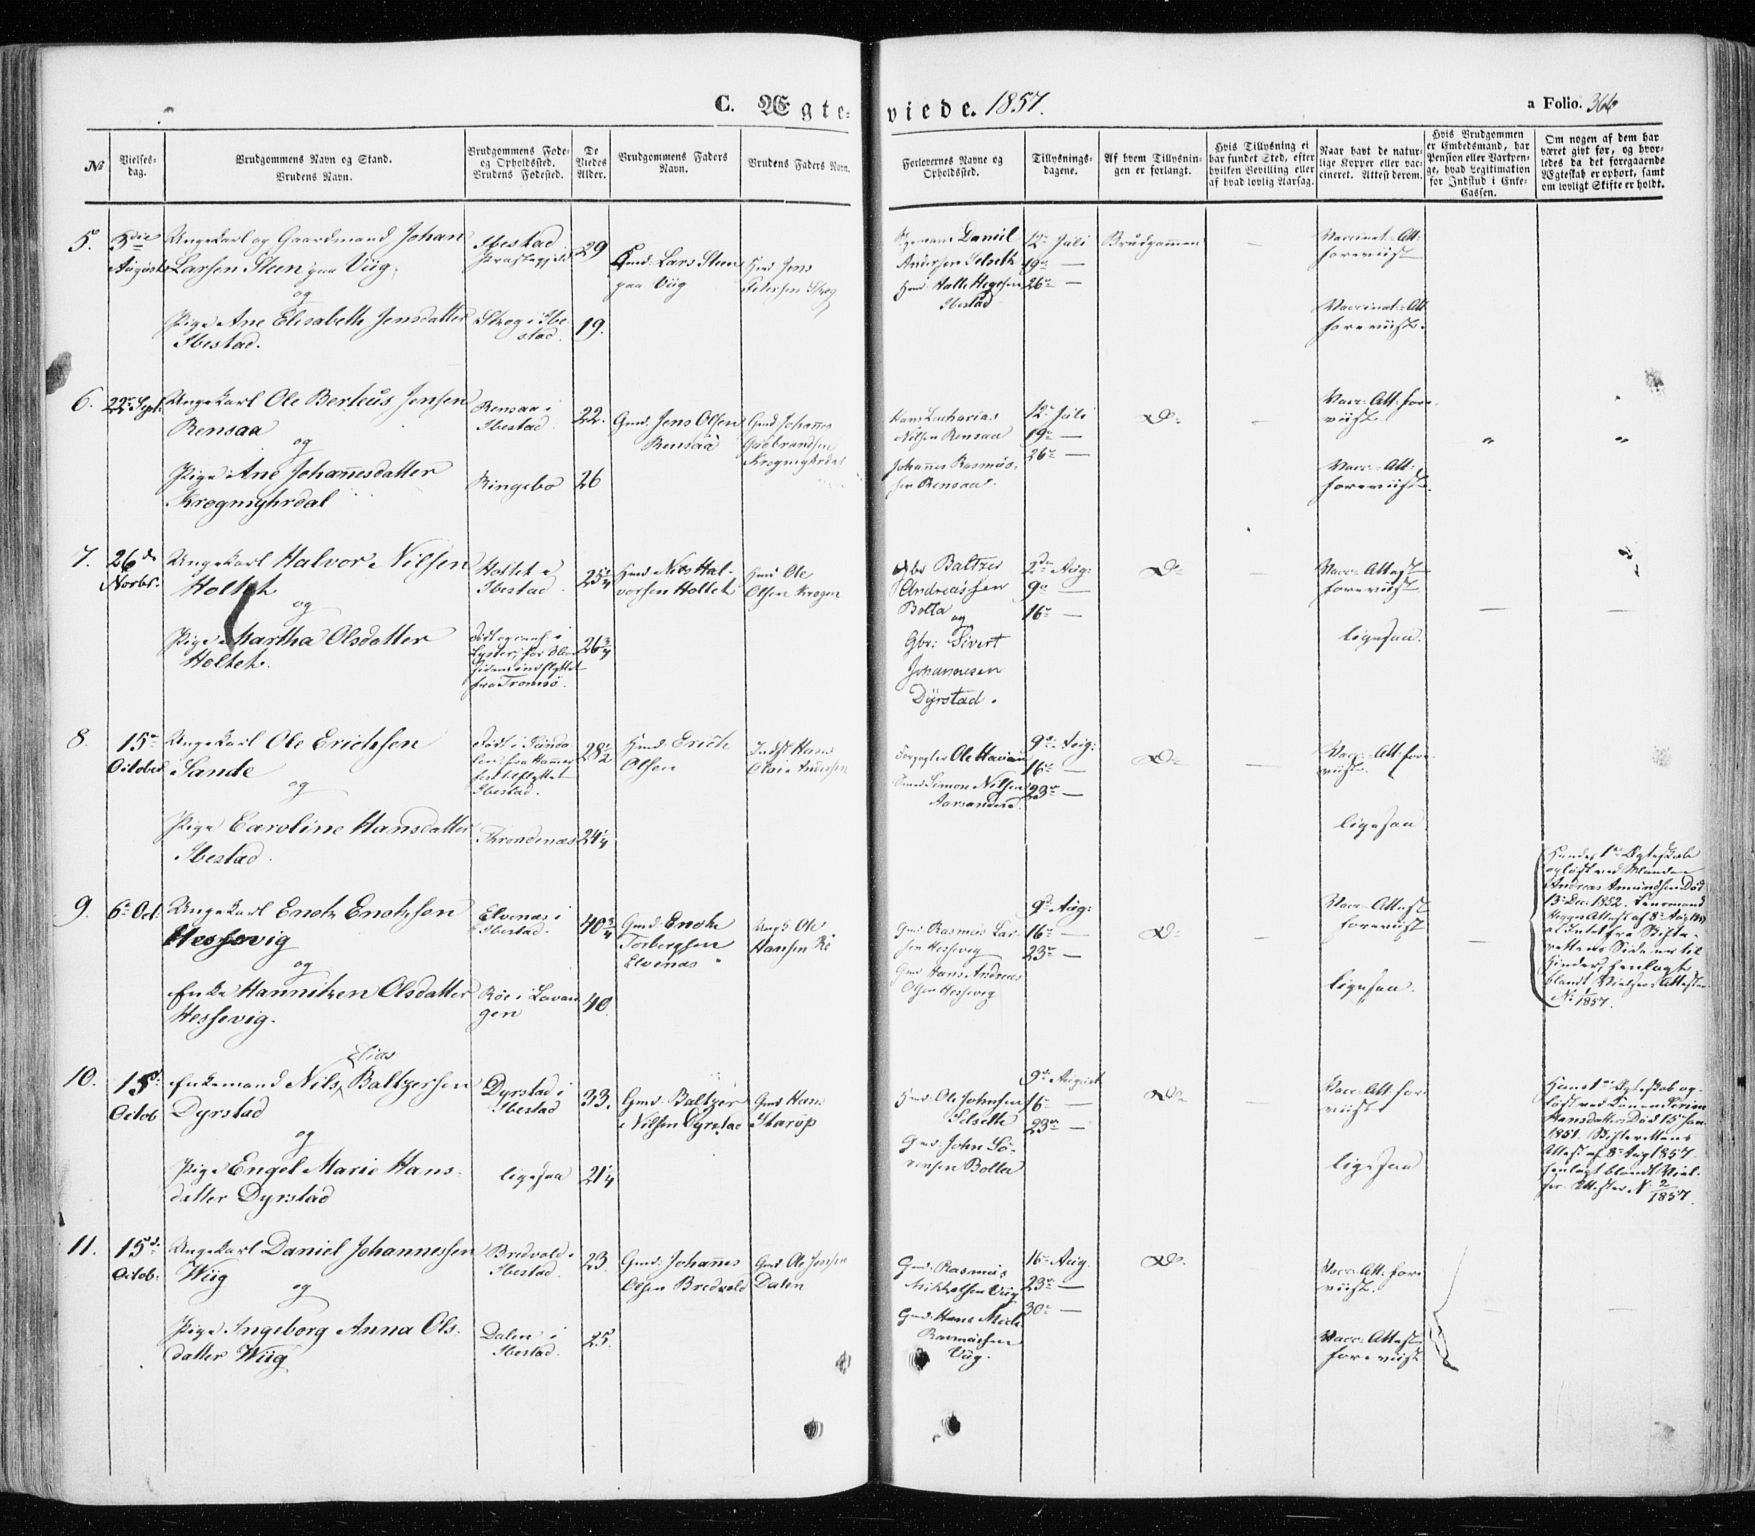 C. Ægte-
viede. 1857.
a Folio. 366
No
Vielses-
dag.
Brudgommens Navn og Stand.
Brudens Navn.
Brudgommens Føde-
og Opholdssted.
Brudens Fødested.
De
Viedes
Alder.
Brudgommens Faders
Navn.
Brudens Faders Navn.
Forlovernes Navne og
Opholdssted.
Tillysnings-
dagene.
Af hvem Tillysnin-
gen er forlangt.
Hvis Tillysning ei
har fundet Sted, efter
hvilken Bevilling eller
af hvad lovlig Aarsag.
Naar havt de natur-
lige Kopper eller vac-
cineret. Attest derom.
Hvis Brudgommen
er Embedsmand, har
Pension eller Vartpen-
ge, hvad Legitimation
for Indskud i Enke-
Cassen.
Om nogen af dem har
været givt før, og hvor-
ledes da det foregaaende
Ægteskab er ophørt, samt
om lovligt Skifte er holdt.
5.
3die
August
Ungekarl og Gaardmand Johan
Larsen Steen paa Viig
og
Pige Ane Elisabeth Jensdatter
Ibestad.
Ibestad
Præstegjeld
Skrog i Ibe
stad.
29
19.
Gmd. Lars Steen
paa Viig
Hmd Jens
Petersen Skrog
Daniel
Andersen Selseth
Hmd Halle Hegesen
Ibestad
12te Juli
19de —
26de —
Brudgommen
—
Vaccinat. Att:
foreviist
Vaccinat: Att
foreviist.
6.
22de Sept.
Ungekarl Ole Berteüs Jensen
Rensaa
og
Pige Ane Johannesdatter
Krogmyhrdal
Rensaa i
Ibestad.
Ringebo
22.
26
Gmd. Jens Olsen
Rensaa
Gmd Johannes
Gudbrandsen
Krogmyhrdal
Hans Zacharias
Nilsen Rensaa
Johannes Rasmus-
sen Rensaa.
12te Juli
19de —
26de —
D:
—
Vacc: Att: fore-
viist.
Vacc: Att:
foreviist.
"
"
7.
26de
Novbr.
Ungekarl Halvor Nilsen
Holtet
og
Pige Martha Olsdatter
Holtet.
Holtet i
Ibestad.
Født og conf. i
Lyster, for
siden indflyttet
fra Tromsø.
25 1/4
26 3/4
Hmd Niels Hal-
vorsen Holtet
Hmd Ole
Olsen Krogen
Baltzer
Andreassen
Bolta og
Gbr: Sivert
Johannesen
Dyrstad.
2den Aug:
9de —
16de —
D:
—
Vacc: Attest
foreviist
ligesaa.
—
—
8.
15de
October
Ungekarl Ole Erichsen
Sande
og
Pige Caroline Hansdatter
Ibestad.
Født i
fra Hammer-
fest tilflyttet
Ibestad.
Throndenæs
28 1/2
24 1/4
Hmd: Erich
Olsen
Indst Hans
Andersen
Ole Havian
Simon Nilsen
Aarsandered
9de Aug:
16de —
23de —
D:
—
Vacc: Att: fore-
viist.
ligesaa
9.
6te Oct.
Ungekarl Enok Enoksen
Hessevig
og
Enke Hannitzen Olsdatter
Hessevig.
Elvenæs i
Ibestad.
Røe i Lavan
gen
40 3/4
40.
Gmd: Enok
Torbergsen
Elvenæs
Ole
Hansen Rø
Gmd Rasmus Lar-
sen Hessevig
Gmd Hans Andreas
Olsen Hessevig
9de Aug:
16de —
23de —
D:
—
Vacc: Attest
foreviist
ligesaa.
—
Hendes 1ste Ægteskab
opløst ved Manden
Andreas Amundsen Død
13 Dec. 1852. Lensmand
Attest af 8de Aug 1857
at Intet fra Skifte-
rettens Side er til
Hinder, henlagt
blandt Vielses Attester
No 1/1857.
10.
15de
Octob
Enkemand Nils Elias Baltzersen
Dyrstad
og
Pige Engel Marie Hans-
datter Dyrstad
Dyrstad i
Ibestad
ligesaa
33.
21 1/4
Gmd: Baltzer
Nilsen Dyrstad
Gmd Hans
Starup
Hmd: Ole Johnsen
Selseth
Gmd: John Sö-
rensen Bolta
9de August
16de —
23de —
D:
Vacc: Att fore
viist
ligesaa
Hans 1ste Ægteskab op-
løst ved Konen
Hansdatters Død 15de Jan.
1851. Lensmandens
Attest af 8de Aug 1857
henlagt blandt Viel-
ses Attester No 2/1857.
11.
15de
Octob:
Ungekarl Daniel Johannessen
Wiig
og
Pige Ingeborg Anna Ols-
datter Wiig
Bredvold i
Ibestad.
Dalen i
Ibestad.
23.
25.
Gmd: Johannes
Olsen Bredvold
Gmd Ole Jensen
Dalen
Gmd: Rasmus
Mikkelsen Viig
Gmd: Hans
Rasmussen
Viig.
16de Aug.
23de —
30de —
D:
Vacc: Att: fore
viist.
Vacc: Attest
foreviist
—
—